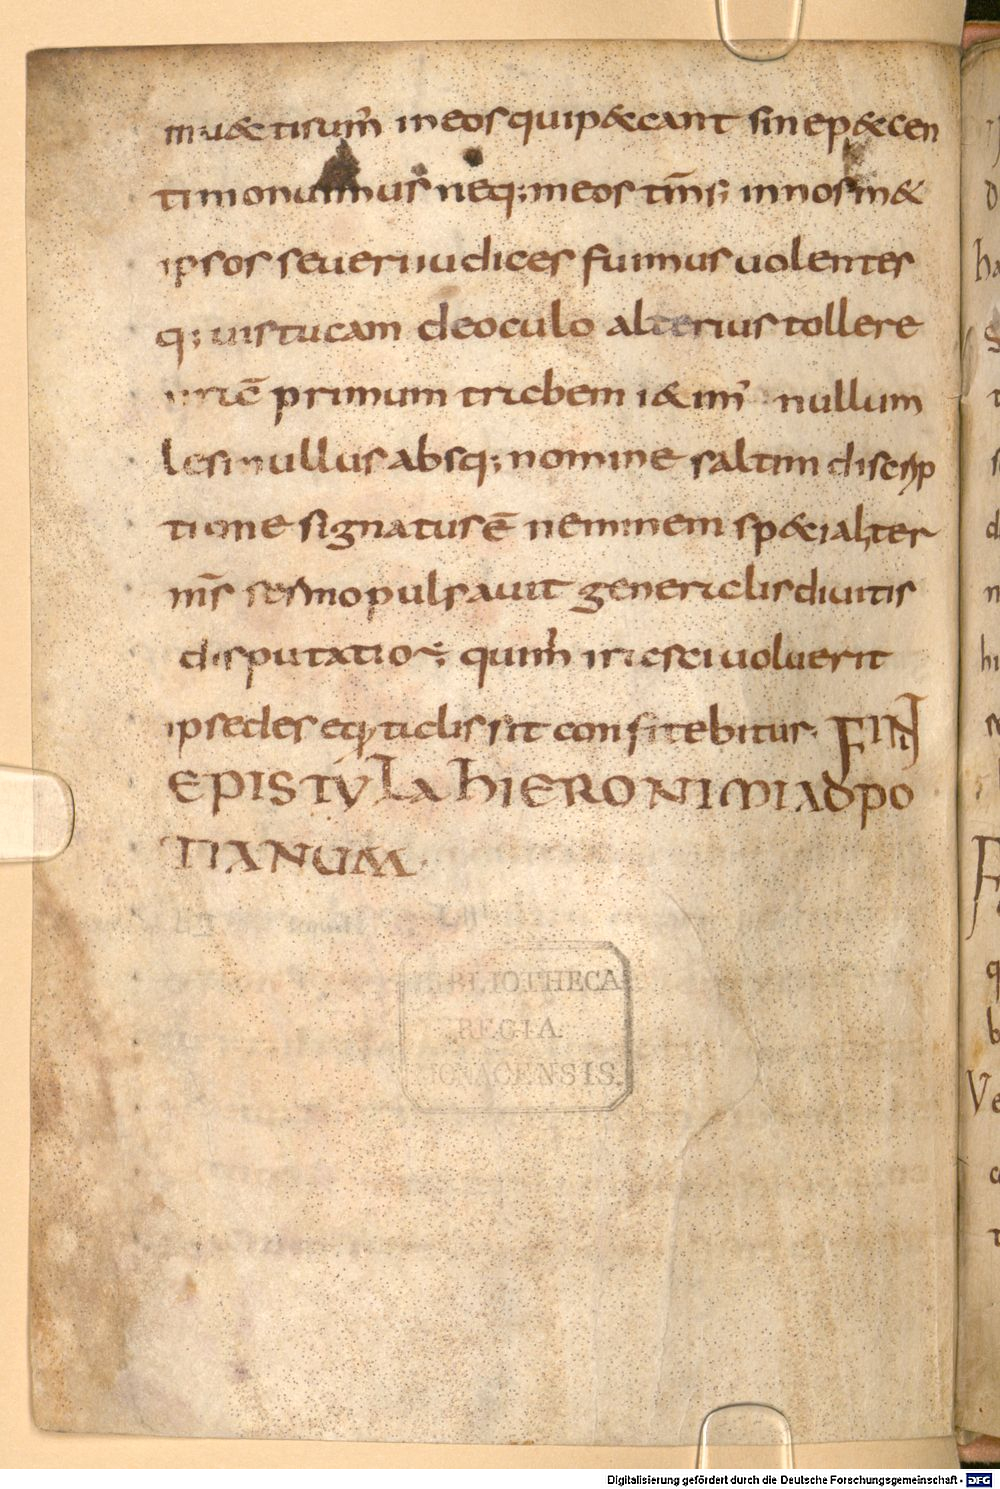 inuecti sum̄ in eos qui peccant sine peccan
ti monuimus neq; in eos tm̄; in nos met
ipsos seueri iudices fuimus uolentes
q; uistucam de oculo alterius tollere
nr̄ae primum trabem iecim̄ nullum
lesi nullus absq; nomine saltim discrip
tione signatus ē neminem specialiter
nr̄s sermo pulsauit generalis diuitiis
disputatio ē; qui m̄ irasci uoluerit
ipse de se q; talis sit confitebitur. FIN
EPISTULA HIERONIMI AD PO
TIANUM.
BIBLIOTHECA
REGIA
MONACENSIS.
Digitalisierung gefördert durch die Deutsche Forschungsgemeinschaft - DFG